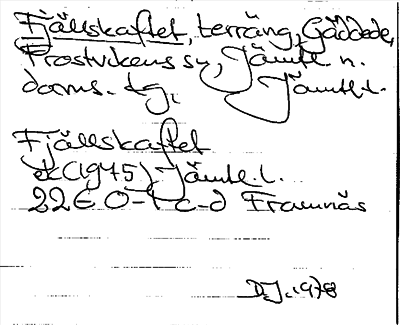 Fjällskaftet, terräng, Gäddede,
Frostvikens sn, Jämtl. n.
doms. tg. Jämtl. l.
Fjällskaftet
ek (1975) Jämtl. l.
22E 0-1 c-d Framnäs
D.J. 1978